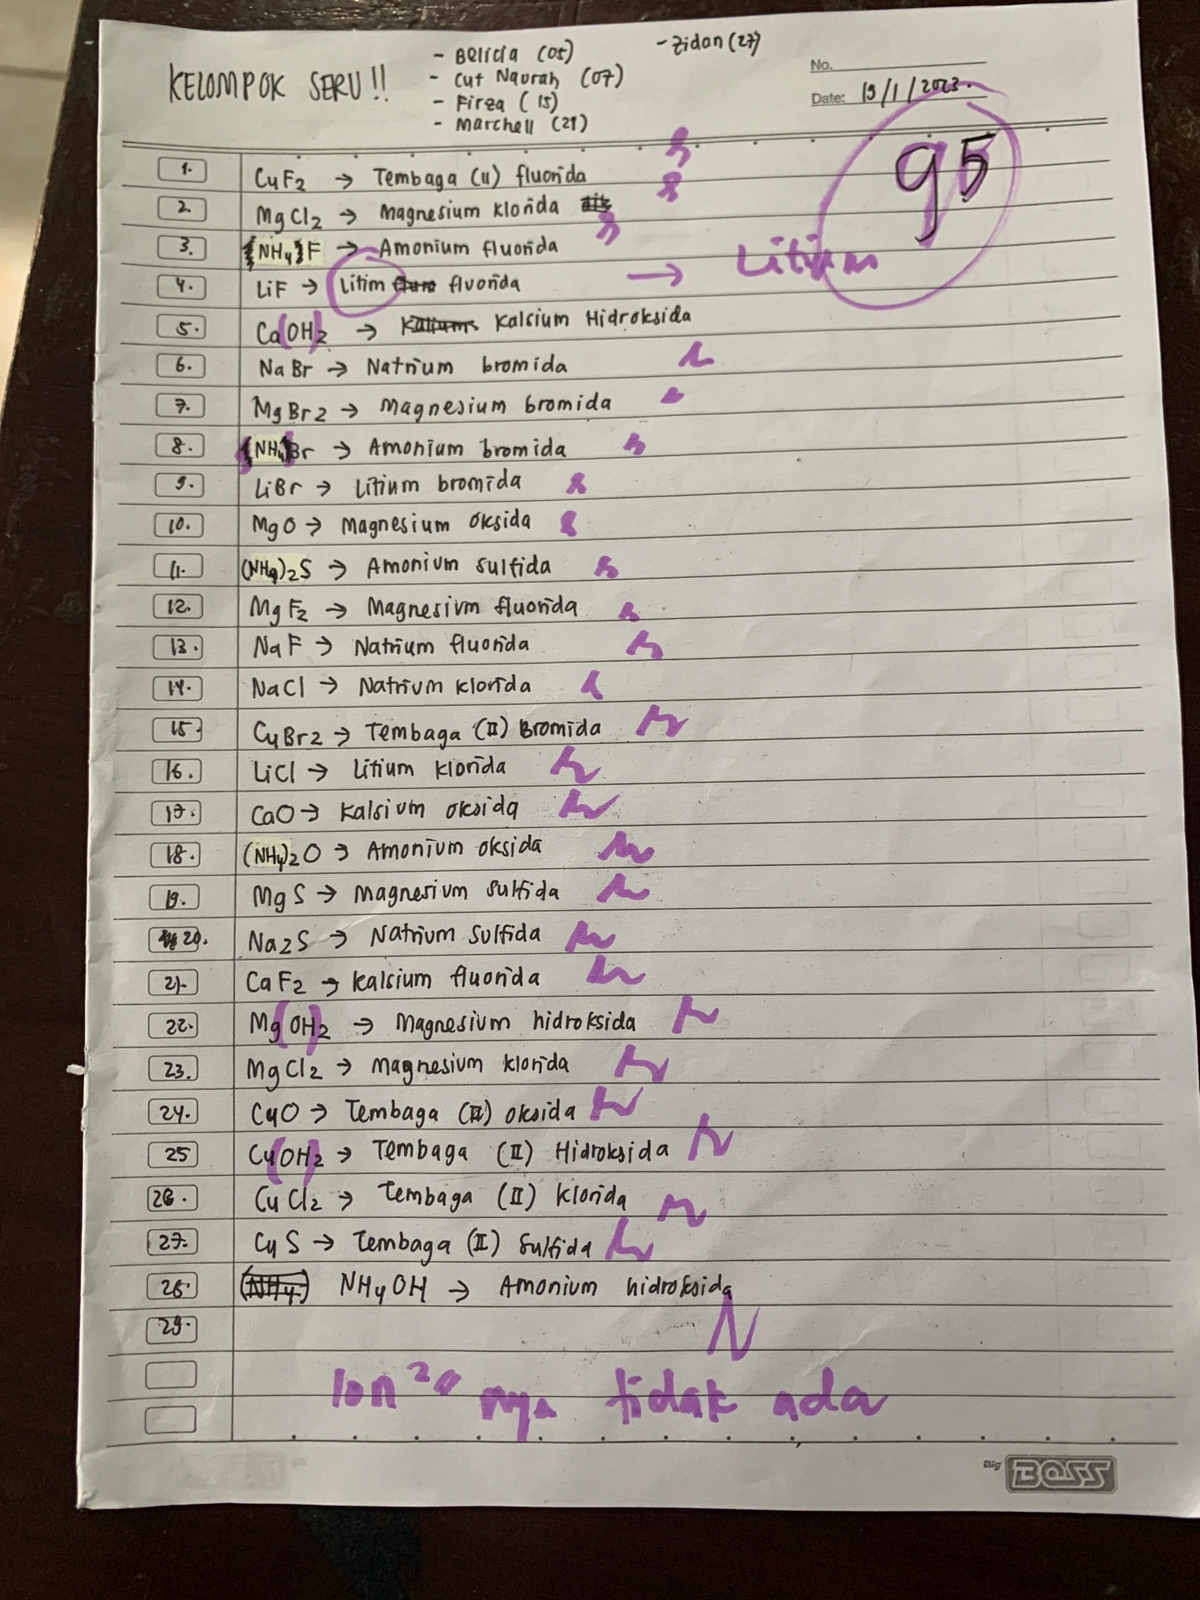 KELOMPOK SERU!!
- Belicia (05)
- Cut Naurah (07)
- Firza (15)
- Marchell (21)
- Zidan (27)
No.
Date: 19/1/2023.
95
1. CuF2 → Tembaga (II) fluorida
2. MgCl2 → Magnesium klorida
3. (NH4)F → Amonium fluorida
4. LiF → Litim fluorida → Litium
5. Ca(OH)2 → Kalsium Hidroksida
6. NaBr → Natrium bromida
7. MgBr2 → Magnesium bromida
8. (NH4)Br → Amonium bromida
9. LiBr → Litium bromida
10. MgO → Magnesium oksida
11. (NH4)2S → Amonium sulfida
12. MgF2 → Magnesium fluorida
13. NaF → Natrium fluorida
14. NaCl → Natrium klorida
15. CuBr2 → Tembaga (II) Bromida
16. LiCl → Litium klorida
17. CaO → Kalsium oksida
18. (NH4)2O → Amonium oksida
19. MgS → Magnesium sulfida
20. Na2S → Natrium sulfida
21. CaF2 → Kalsium fluorida
22. Mg(OH)2 → Magnesium hidroksida
23. MgCl2 → Magnesium klorida
24. CuO → Tembaga (II) oksida
25 Cu(OH)2 → Tembaga (II) Hidroksida
26. CuCl2 → Tembaga (II) klorida
27. CuS → Tembaga (II) Sulfida
28. NH4OH → Amonium hidroksida
29.
Ion2 nya tidak ada
Big BOSS